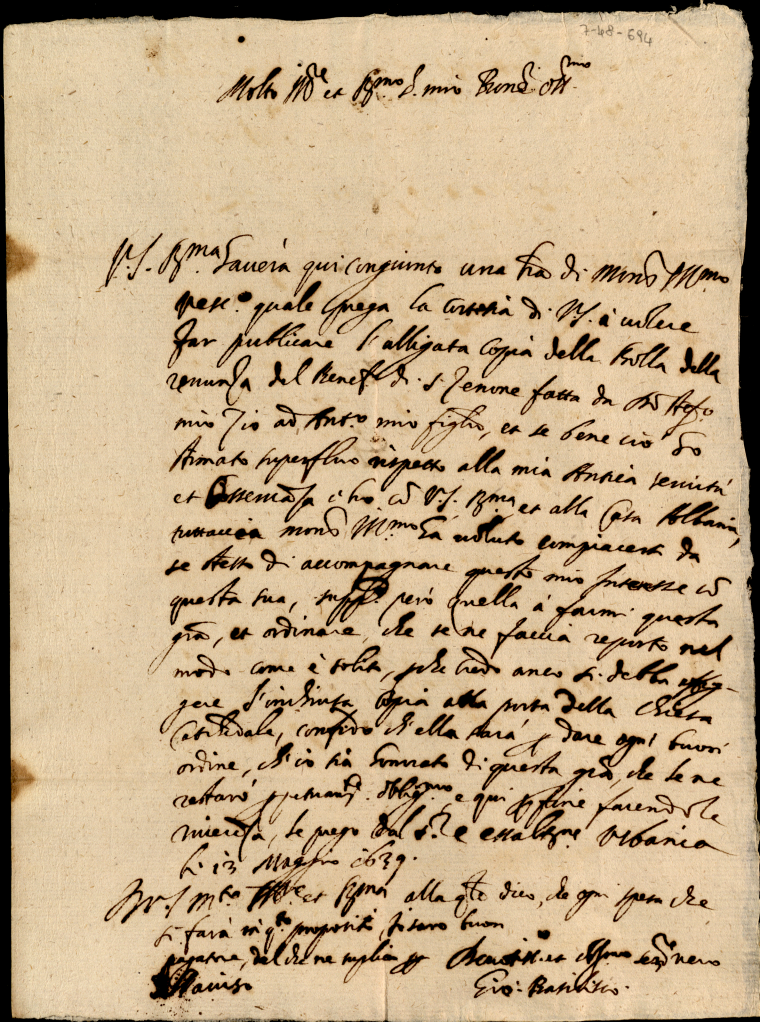 7-48-694
Molto Ill.re et R.mo S. mio Pron.e oss.mo
V.S. R.ma haverà qui congiunto una l.ra di Mons.r Ill.mo
Vesc.o quale prega la cortesia di V.S. à volere
far publicare l'alligata copia della Bolla della
renunza del Benef.o di S. Zenone fatta da
mio Zio ad Ant.o mio figlio, et se bene ciò hò
stimato superfluo rispetto alla mia antica servitù
et osservanza c'hò cō V.S. R.ma et alla Casa Albania,
tuttavia mons.r Ill.mo hà voluto compiacersi da
se stesso di accompagnare questo mio interesse cō
questa sua, supp.co però quella à farmi questa
gra, et ordinare, che se ne faccia reporto nel
modo come è solito, credo anco si debba affig-
gere l'inchiusa copia alla porta della Chiesa
Cathedale, confido ch'ella sarà p dare ogni buon
ordine, ch'io sia honorato di questa gra, che le ne
restarò obblig.mo, e qui p fine facendole
riverenza, le prego dal S.re Urbania
li 13 Maggio 1639.
Di V.S. m.to Ill.re et R.ma alla q.le dico, che ogni spesa che
si farà in q.to proposito, io sarò buon
pagatore, del che ne supplico
l'aviso
Gio: Battista